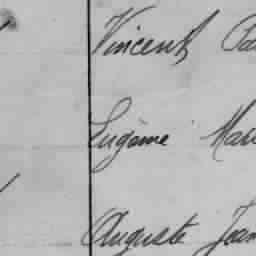 Vincent
Eugène
Auguste Jean